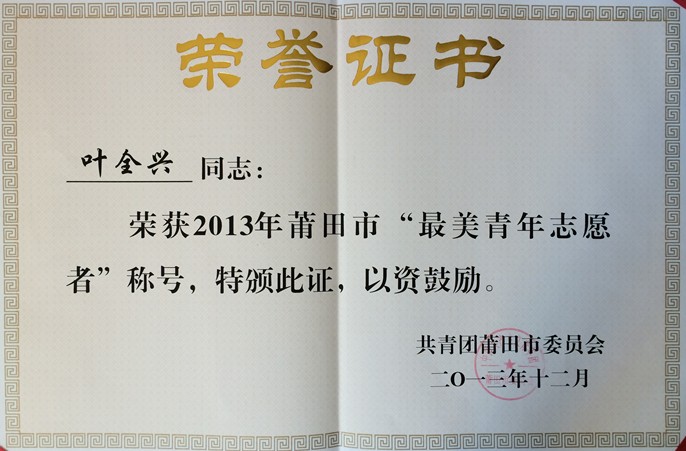 荣誉证书
叶全兴 同志：
荣获2013年莆田市“最美青年志愿
者”称号，特颁此证，以资鼓励。
共青团莆田市委员会
二〇一三年十二月